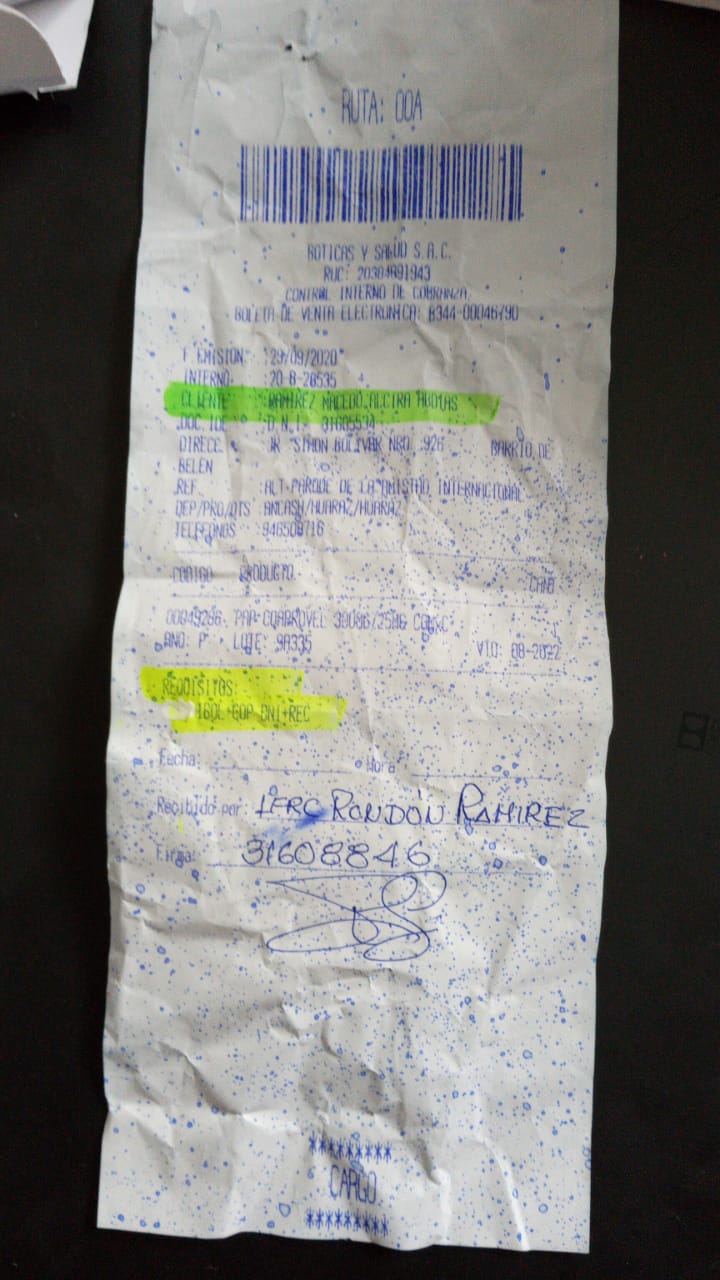 RUTA: 00A
BOTICAS Y SALUD S.A.C.
RUC: 20304091943
CONTROL INTERNO DE COBRANZA
BOLETA DE VENTA ELECTRONICA: B344-00046790
F. EMISION: :29/09/2020
INTERNO :20-8-28535
CLIENTE :RAMIREZ MACEDO,ALCIRA
DOC.IDE : D.N.I: 31605534
DIRECC. : JR SIMON BOLIVAR NRO. 926 BARRIO DE
BELEN
REF :ALT-PARQUE DE LA AMISTAD INTERNACIONAL
DEP/PRO/DTS :ANCASH/HUARAZ/HUARAZ
TELEFONOS :946509716
CODIGO PRODUCTO CANT
00049286 PAP-COAPROVEL
LOTE: 9A335 VTO: 08-2022
REQUISITOS:
DNI+REC
Fecha: Hora
Recibido por: RONDÓN RAMIREZ
Firma: 31608846
*********
CARGO
*********